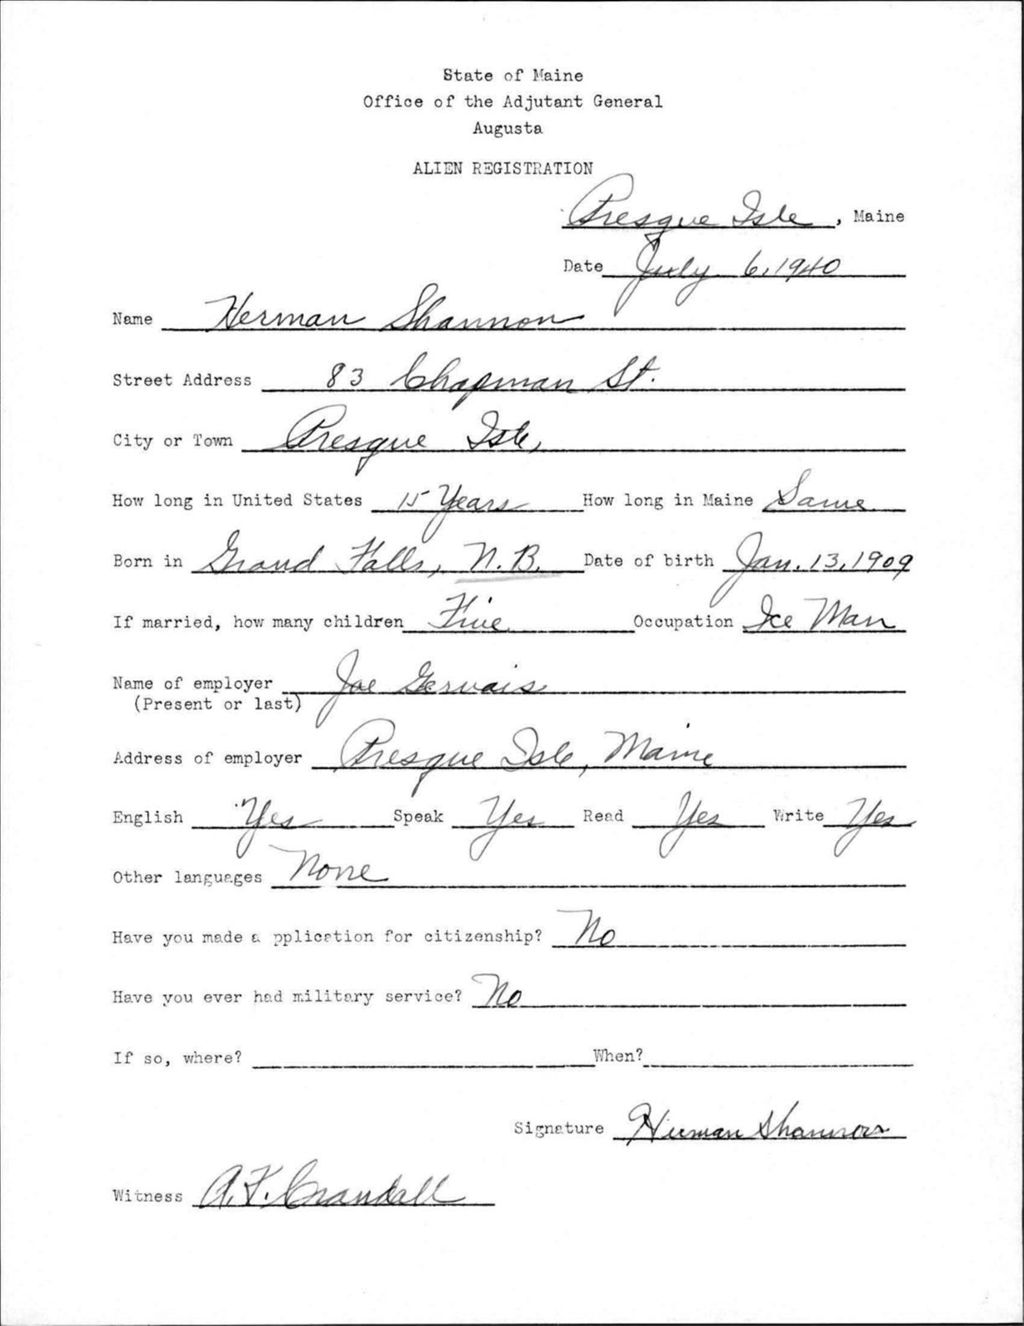 State of Maine
Office of the Adjutant General
Augusta
ALIEN REGISTRATION
Presque Isle, Maine
Date July 6, 1940
Name Herman Shannon
Street Address 83 Chapman St.
City or Town Presque Isle,
How long in United States 15 Years How long in Maine Same
Born in Grand Falls, N.B. Date of birth Jan. 13, 1909
If married, how many children Five Occupation Ice Man
Name of employer Joe Gervais
(Present or last)
Address of employer Presque Isle, Maine
English Yes Speak Yes Read Yes Write Yes
Other languages None
Have you made a pplication for citizenship? No
Have you ever had military service? No
If so, where? When?
Signature Herman Shannon
Witness A.F. Crandall